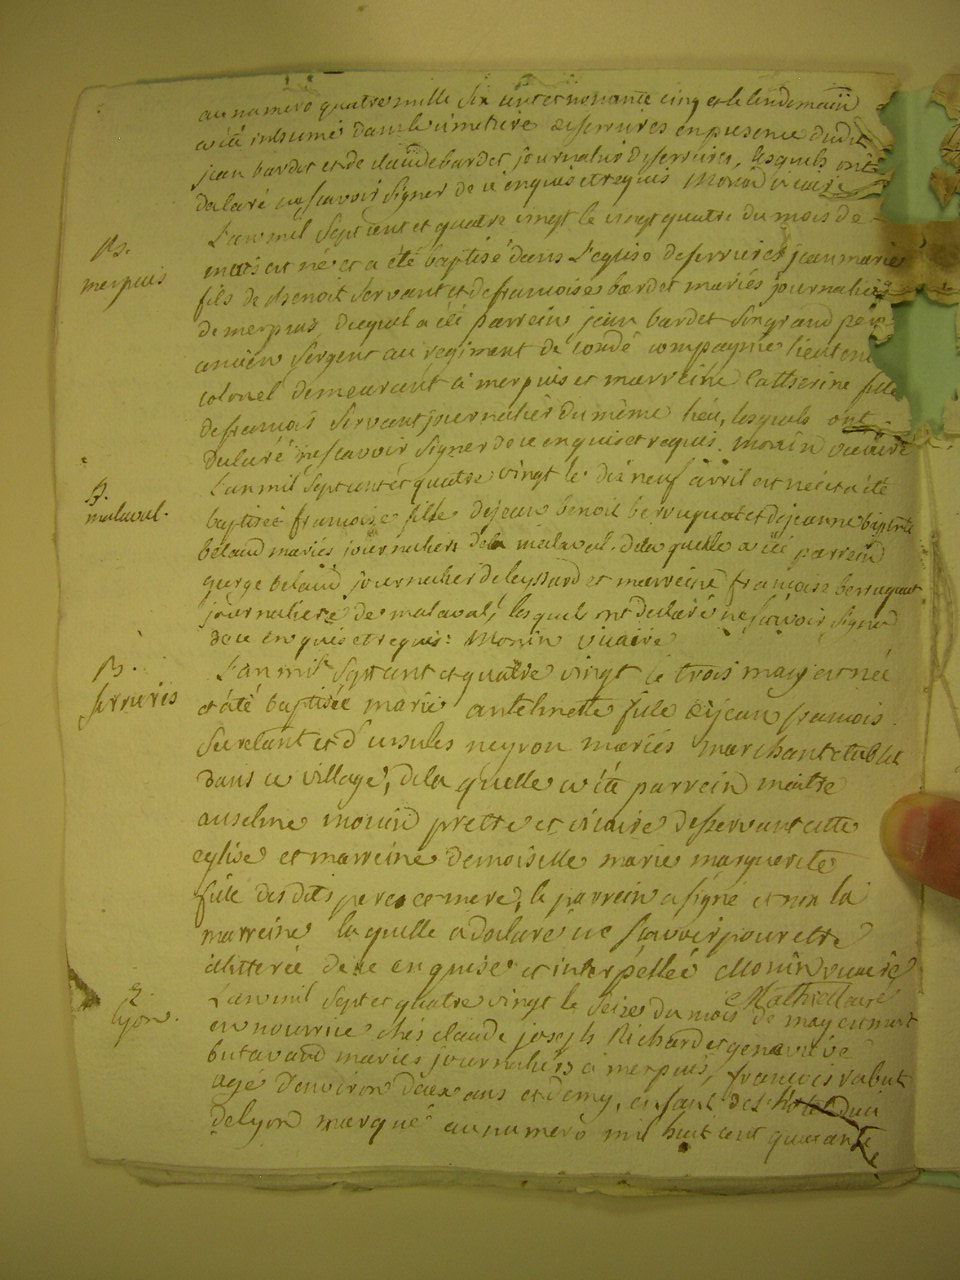 au numero quatre mille six cent et nonante cinq et le lendemain
a été inhumé dans le cimetiere de serrieres en presence dudit
jean bardet et de claude bardet journalier de serrieres, lesquels ont
declaré ne scavoir signer de ce enquis et requis Monin vicaire
L'an mil sept cent et quatre vingt le vingt quatre du mois de
B.
merpuis
mars est né et a été baptisé dans L'eglise de serrieres jean marie
fils de Benoit servant et de francoise bardet mariés journaliers
de merpuis duquel a été parrein jean bardet son grand pere
ancien sergent au regiment de condé compagnie lieutenant
colonel demeurant à merpuis et marreine Catherine fille
de francois servant journalier du même lieu, lesquels ont
declaré ne scavoir signer de ce enquis et requis. monin vicaire
L'an mil sept cent et quatre vingt le dix neuf avril est née et a été
B.
malaval.
baptisée francoise fille de jean benoit berruquat et de jeanne baptiste
belaud mariés journaliers de malaval. de la quelle a été parrein
george belaud journalier de leyssard et marreine francoise berruquat
journaliere de malaval, lesquels ont declaré ne scavoir signer
de ce enquis et requis: Monin vicaire
L'an mil sept cent et quatre vingt le trois may est née
B.
serrieres
et a été baptisée marie anthelmette fille de jean francois
et d'ursules neyron mariés marchant etablit
dans ce village, de la quelle a été parrein maitre
anselme monin prettre et vicaire desservant cette
eglise et marreine demoiselle marie marguerite
fille desdits pere et mere, le parrein a signé et non la
marreine laquelle a declaré ne scavoir pour etre
illitterée de ce enquise et interpéllée Monin vicaire
Mathie Curé
L'an mil sept et quatre vingt le seize du mois de may est mort
Lyon.
en nourrice chés claude joseph Richard et genevieve
butavand mariés journaliers à merpuis, francois rabut
agé d'environ deux ans et demy, enfant de l'hotel dieu
de Lyon marqué au numero mil huit cent quarante